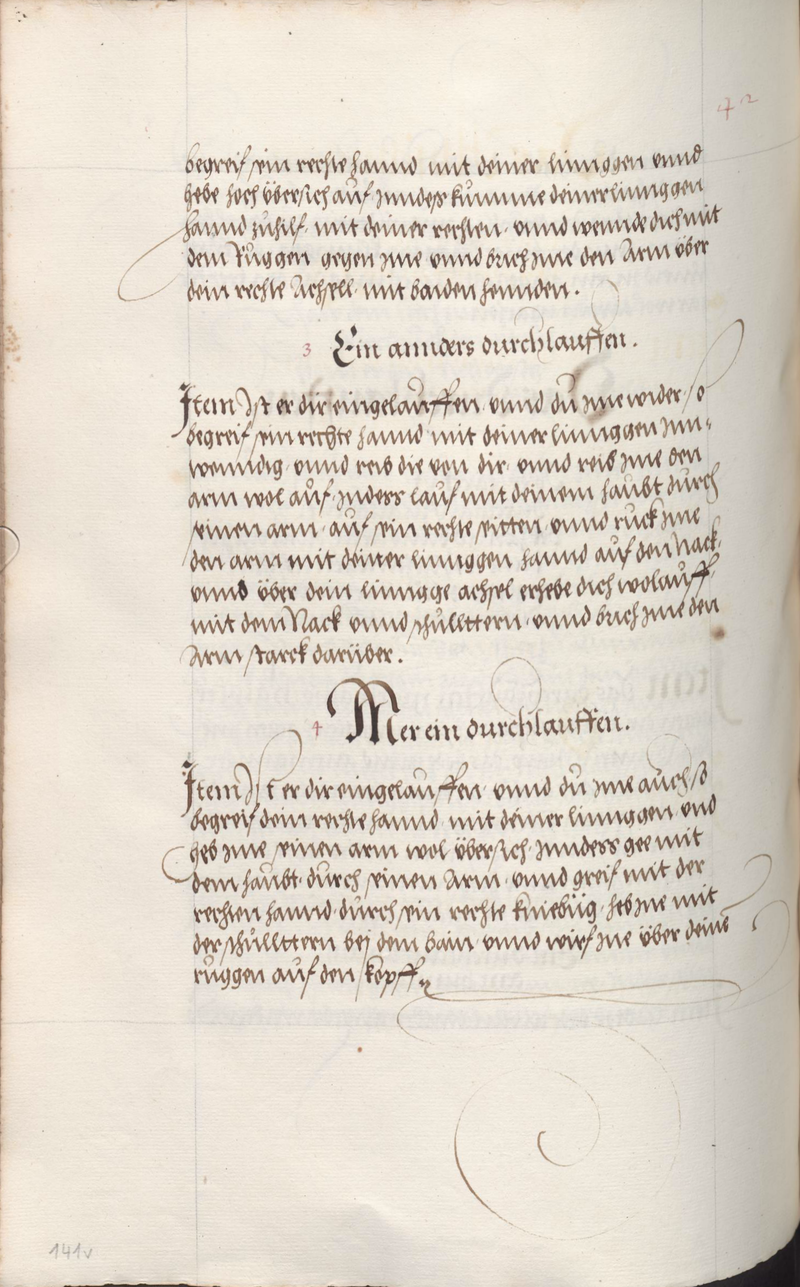 42
begreif sein rechte hannd mit deiner linnggen vnnd
hebe hoch übersich auf Jnndes kumme deiner linnggen
hannd zuhilf mit deiner rechten vnnd wennde dich mit
dem Ruggen gegen Jme vnnd brich Jme den Arm über
dein rechte Achsell mit baiden hennden .
3 Ein annders durchlauffen .
Item Jst er dir eingelauffen vnnd du Jme wider so
begreif sein rechte hannd mit deiner linnggen Jnn-
wenndig vnnd reib die von dir vnnd reib Jme den
arm wol auf Jnders lauf mit deinem haubt durch
seinen arm auf sein rechte seitten vnnd ruck Jme
den arm mit deiner linnggen hannd auf den Nack
vnnd über dein linngge achsel erhebe dich wol auff
mit dem Nack vnnd schullttern vnnd brich Jme den
Arm starck darüber .
4 Mer ein durchlauffen .
Item Jst er dir eingelauffen vnnd du Jme auch so
begreif dein rechte hannd mit deiner linnggen vnd
heb Jme seinen arm wol übersich Jnnders gee mit
dem haubt durch seinen Arm vnnd greif mit der
rechten hannd durch sein rechte kniebüg heb Jne mit
der schullttern bej dem bain vnnd wirf Jne über deine
ruggen auf den kopff
141v